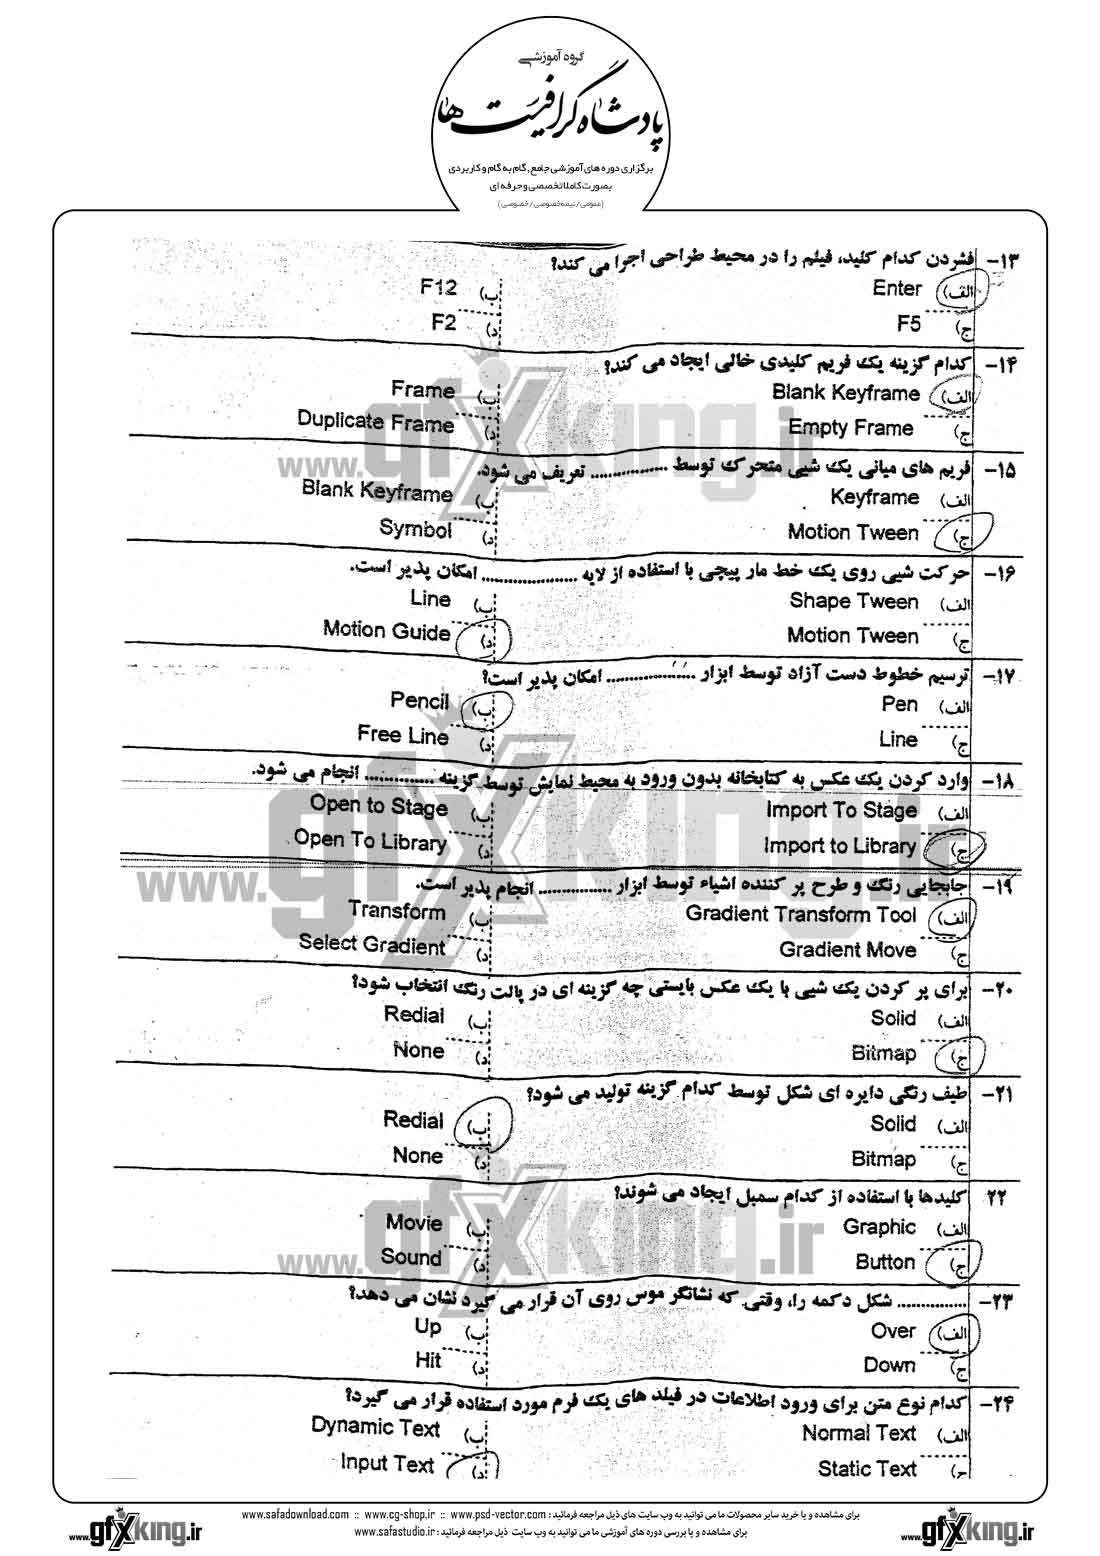 گروه آموزشی
پادشاه گرافیست ها
برگزاری دوره های آموزشی جامع , گام به گام و کاربردی
بصورت کاملا تخصصی و حرفه ای
(عمومی / نیمه خصوصی / خصوصی)
۱۳- فشردن کدام کلید، فیلم را در محیط طراحی اجرا می کند؟
الف) Enter ب) F12
ج) F5 د) F2
۱۴- کدام گزینه یک فریم کلیدی خالی ایجاد می کند؟
الف) Blank Keyframe ب) Frame
ج) Empty Frame د) Duplicate Frame
۱۵- فریم های میانی یک شیی متحرک توسط ................ تعریف می شود.
الف) Keyframe ب) Blank Keyframe
ج) Motion Tween د) Symbol
۱۶- حرکت شیی روی یک خط مار پیچی با استفاده از لایه .................... امکان پذیر است.
الف) Shape Tween ب) Line
ج) Motion Tween د) Motion Guide
۱۷- ترسیم خطوط دست آزاد توسط ابزار .................. امکان پذیر است؟
الف) Pen ب) Pencil
ج) Line د) Free Line
۱۸- وارد کردن یک عکس به کتابخانه بدون ورود به محیط نمایش توسط گزینه .............. انجام می شود.
الف) Import To Stage ب) Open to Stage
ج) Import to Library د) Open To Library
۱۹- جابجایی رنگ و طرح پر کننده اشیاء توسط ابزار ............... انجام پذیر است.
الف) Gradient Transform Tool ب) Transform
ج) Gradient Move د) Select Gradient
۲۰- برای پر کردن یک شیی با یک عکس بایستی چه گزینه ای در پالت رنگ انتخاب شود؟
الف) Solid ب) Redial
ج) Bitmap د) None
۲۱- طیف رنگی دایره ای شکل توسط کدام گزینه تولید می شود؟
الف) Solid ب) Redial
ج) Bitmap د) None
۲۲ کلیدها با استفاده از کدام سمبل ایجاد می شوند؟
الف) Graphic ب) Movie
ج) Button د) Sound
۲۳- .............. شکل دکمه را، وقتی که نشانگر موس روی آن قرار می گیرد نشان می دهد؟
الف) Over ب) Up
ج) Down د) Hit
۲۴- کدام نوع متن برای ورود اطلاعات در فیلد های یک فرم مورد استفاده قرار می گیرد؟
الف) Normal Text ب) Dynamic Text
ج) Static Text د) Input Text
www.gfxking.ir
www.gfxking.ir
www.gfxking.ir
برای مشاهده و یا خرید سایر محصولات ما می توانید به وب سایت های ذیل مراجعه فرمائید : www.safadownload.com :: www.cg-shop.ir :: www.psd-vector.com
برای مشاهده و یا بررسی دوره های آموزشی ما می توانید به وب سایت ذیل مراجعه فرمائید : www.safastudio.ir
www.gfxking.ir
www.gfxking.ir